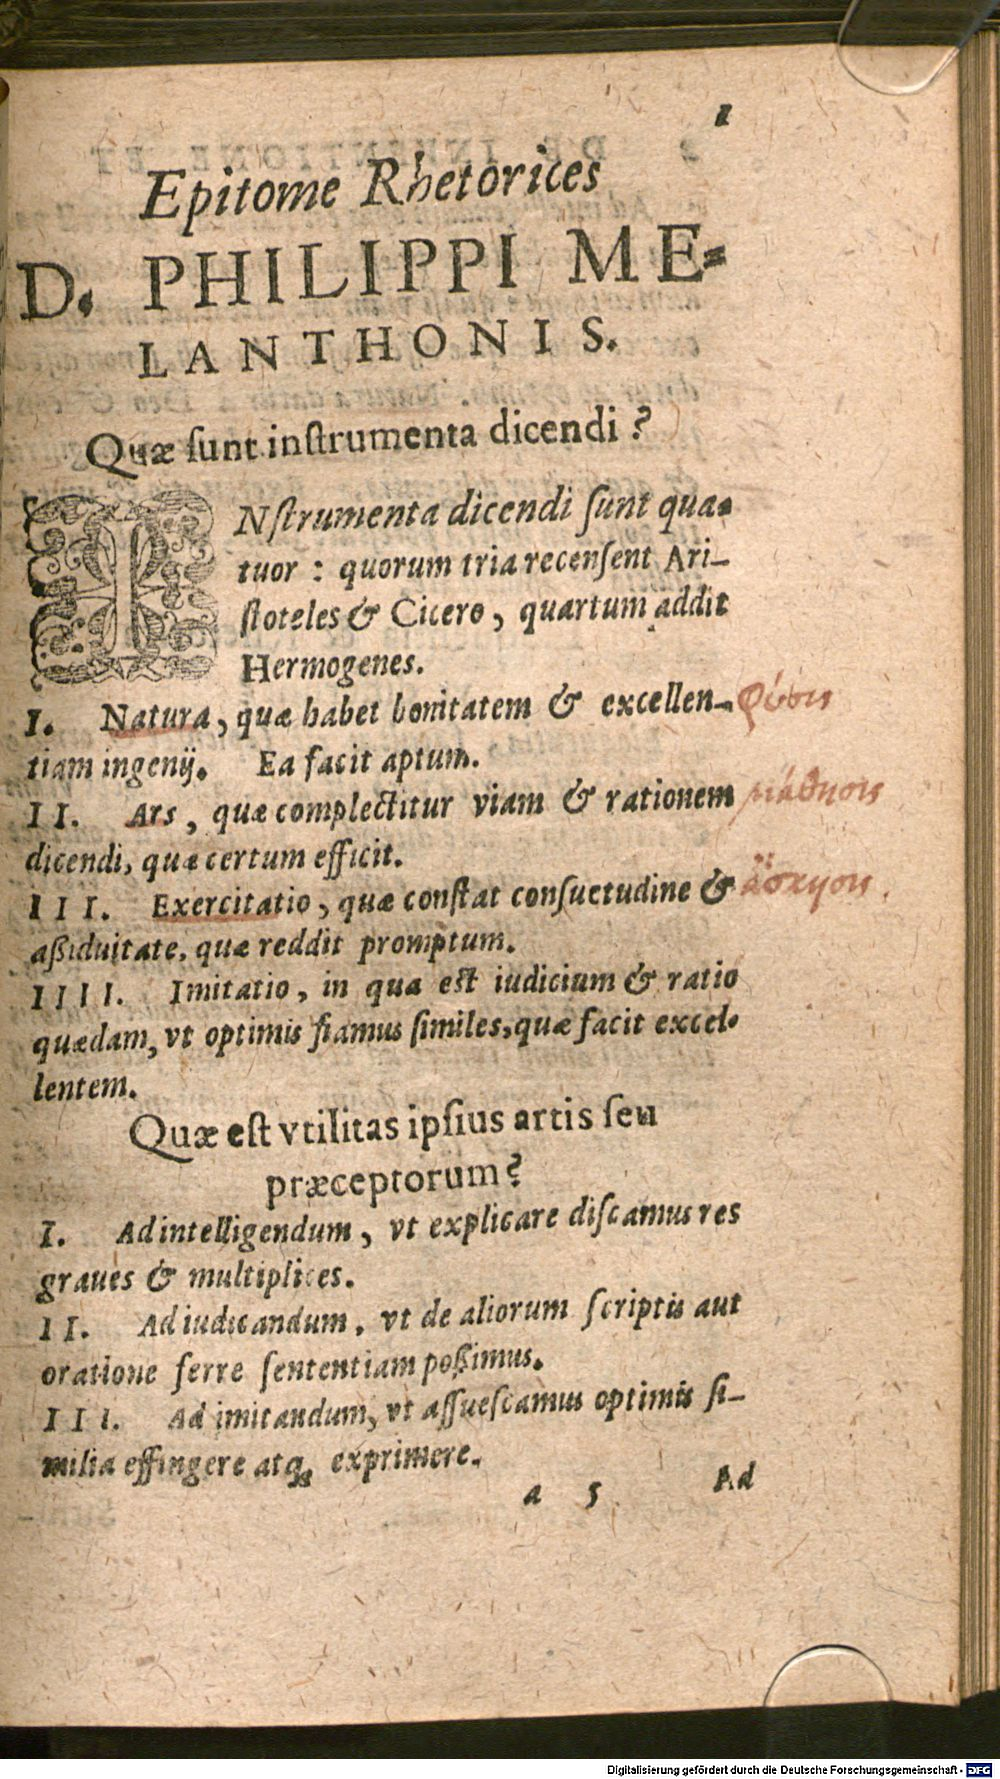 1
Epitome Rhetorices
D. PHILIPPI ME-
LANTHONIS.
Quæ ſunt inſtrumenta dicendi?
INſtrumenta dicendi ſunt qua-
tuor : quorum tria recenſent Ari-
ſtoteles & Cicero, quartum addit
Hermogenes.
I. Natura, quæ habet bonitatem & excellen- φύσις
tiam ingenij. Ea facit aptum.
II. Ars, quæ complectitur viam & rationem μάθησις
dicendi, quæ certum efficit.
III. Exercitatio, quæ conſtat conſuetudine & ἄσκησις.
aßiduitate, quæ reddit promptum.
IIII. Imitatio, in qua eſt iudicium & ratio
quædam, vt optimis fiamus ſimiles, quæ facit excel-
lentem.
Quæ eſt vtilitas ipſius artis ſeu
præceptorum?
I. Ad intelligendum, vt explicare diſcamus res
graues & multiplices.
II. Ad iudicandum, vt de aliorum ſcriptis aut
oratione ferre ſententiam poßimus.
III. Ad imitandum, vt aſſueſcamus optimis ſi-
milia effingere atq; exprimere.
a 5 Ad
Digitalisierung gefördert durch die Deutsche Forschungsgemeinschaft - DFG